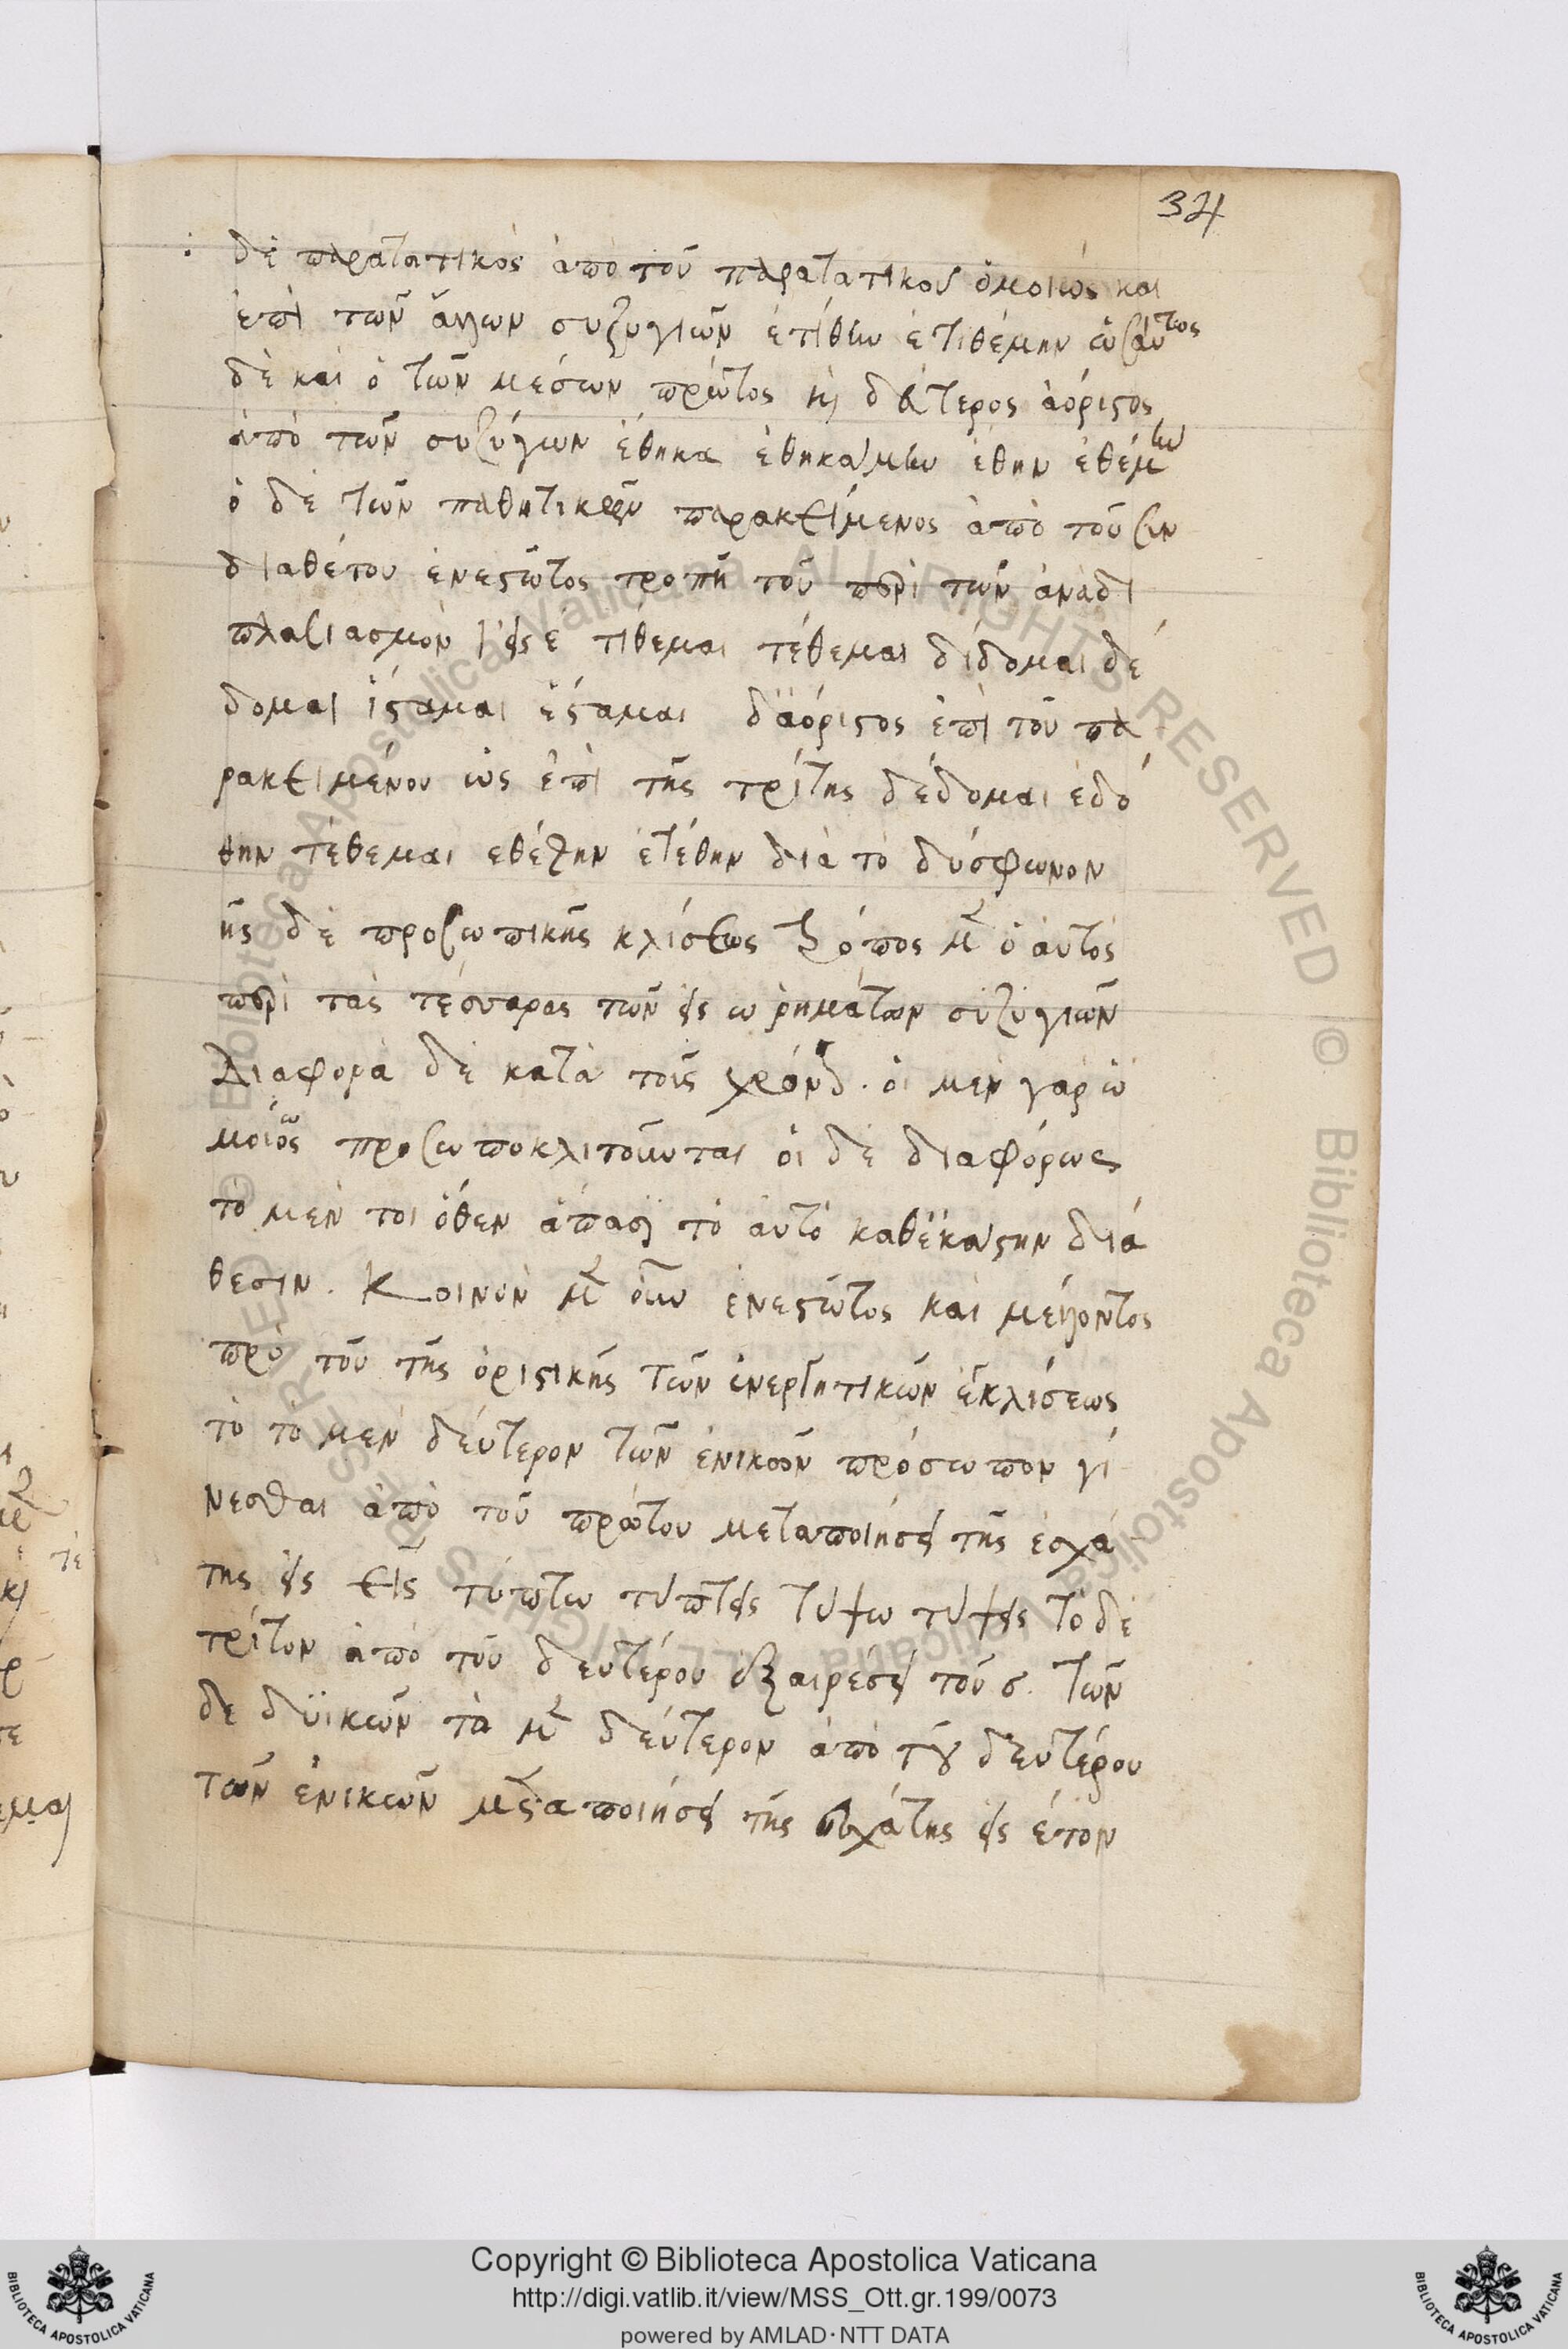 34
δὲ παρατατικὸς ἀπὸ τοῦ παρατατικοῦ ὁμοιώς και
ἐπὶ τῶν ἄλλων συζυγιῶν ἐτίθην ἐτιθέμην ὡσάυτως
δὲ και ὁ τῶν μέσων πρῶτος κὶ δεύτερος ἀόριστος
ἀπὸ τῶν συζύγων ἔθηκα ἐθηκάμην ἔθην ἐθέμην
ὁ δὲ τῶν παθητικῶν παρακείμενος ἀπὸ τοῦ συν
διαθέτου ἐνεστῶτος τροπῆ τοῦ περὶ τῶν ἀναδι
πλασιασμὸν ι εἰς ε τίθεμαι τέθεμαι δίδομαι δέ
δομαι ἵσταμαι ἕσταμαι δ ἀόριστος ἐπὶ τοῦ πα
ρακειμένου ὡς ἐπὶ τῆς τρίτης δέδομαι ἐδό
θην τέθεμαι εθέθην ἐτέθην διὰ τὸ δύσφωνον
ῆς δὲ προσωπικῆς κλίσεως τρόπος μὲν ὁ αὐτὸς
περὶ τὰς τέσσαρας τῶν εἰς ω ῥημάτων συζυγιῶν
Διαφορὰ δὲ κατὰ τοῖς χρόν . οἱ μὲν γὰρ ὡ
μοίως προσωποκλιτοῦνται οἱ δὲ διαφόρως
τὸ μὲν τοι ὅθεν ἅπασι τὸ αὐτὸ καθ ἑκάστην διά
θεσιν . Κοινὸν μὲν οὖν ἐνεστῶτος καὶ μέλλοντος
πρὸ τοῦ τῆς ὁριστικῆς τῶν ἐνεργητικῶν ἐκλίσεως
τὸ τὸ μὲν δεύτερον τῶν ἑνικῶν πρόσωπον γί
νεσθαι ἀπὸ τοῦ πρώτου μεταποιήσει τῆς ἐσχά
της εἰς εις τύπτω τύπτεις τύψω τύψεις τὸ δὲ
τρίτον ἀπὸ τοῦ δευτέρου ἐξαιρέσει τοῦ σ. τῶν
δε δυϊκῶν τὰ μὲν δεύτερον ἀπὸ τοῦ δευτέρου
τῶν ἑνικῶν μεταποιήσει τῆς ἐσχάτης εἰς ετον
Copyright © Biblioteca Apostolica Vaticana
http://digi.vatlib.it/view/MSS_Ott.gr.199/0073
powered by AMLAD·NTT DATA
BIBLIOTECA APOSTOLICA VATICANA
BIBLIOTECA APOSTOLICA VATICANA
© Biblioteca Apostolica Vaticana ALL RIGHTS RESERVED © Biblioteca Apostolica Vaticana ALL RIGHTS RESERVED